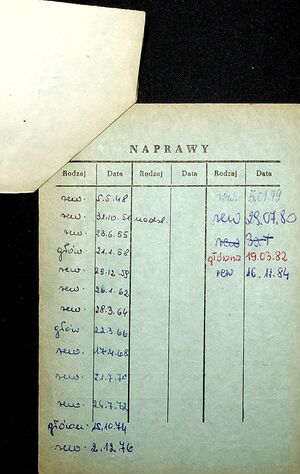 NAPRAWY
Rodzaj Data Rodzaj Data Rodzaj Data
rew. 5.5.48 rew. 5.01.79
rew. 31.10.50 nadzw. rew 29.07.80
rew. 23.6.55 rew
głów. 21.1.58 główna 19.03.82
rew. 25.12.59 rew 16.11.84
rew. 26.1.62
rew. 28.3.64
głów 22.3.66
rew. 17.4.68
rew. 21.7.70
rew. 24.7.72
główn. 15.10.74
rew. 2.12.76